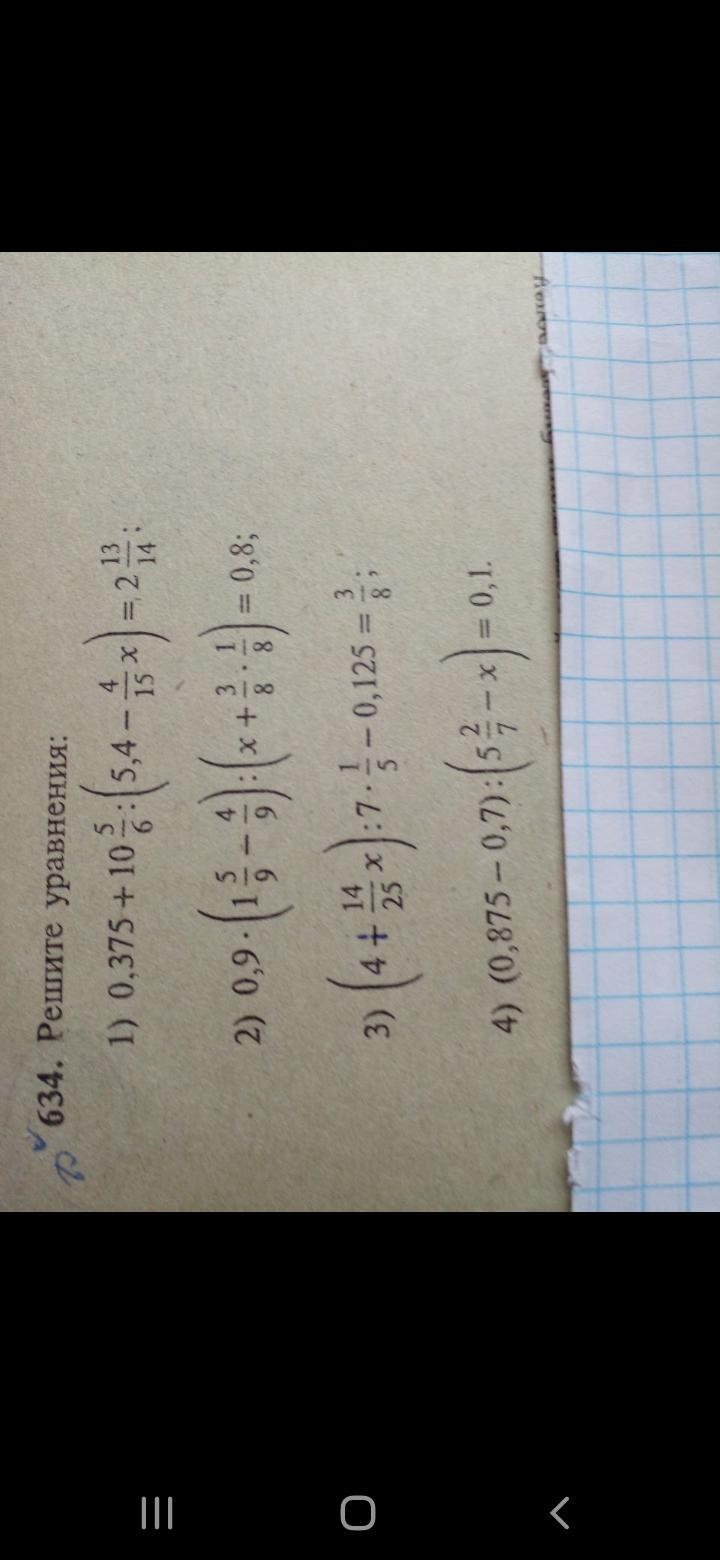 634. Решите уравнения:
1) 0,375 + 10 5/6 : (5,4 − 4/15 x) = 2 13/14;
2) 0,9 · (1 5/9 − 4/9) : (x + 3/8 · 1/8) = 0,8;
3) (4 + 14/25 x) : 7 · 1/5 − 0,125 = 3/8;
4) (0,875 − 0,7) : (5 2/7 − x) = 0,1.